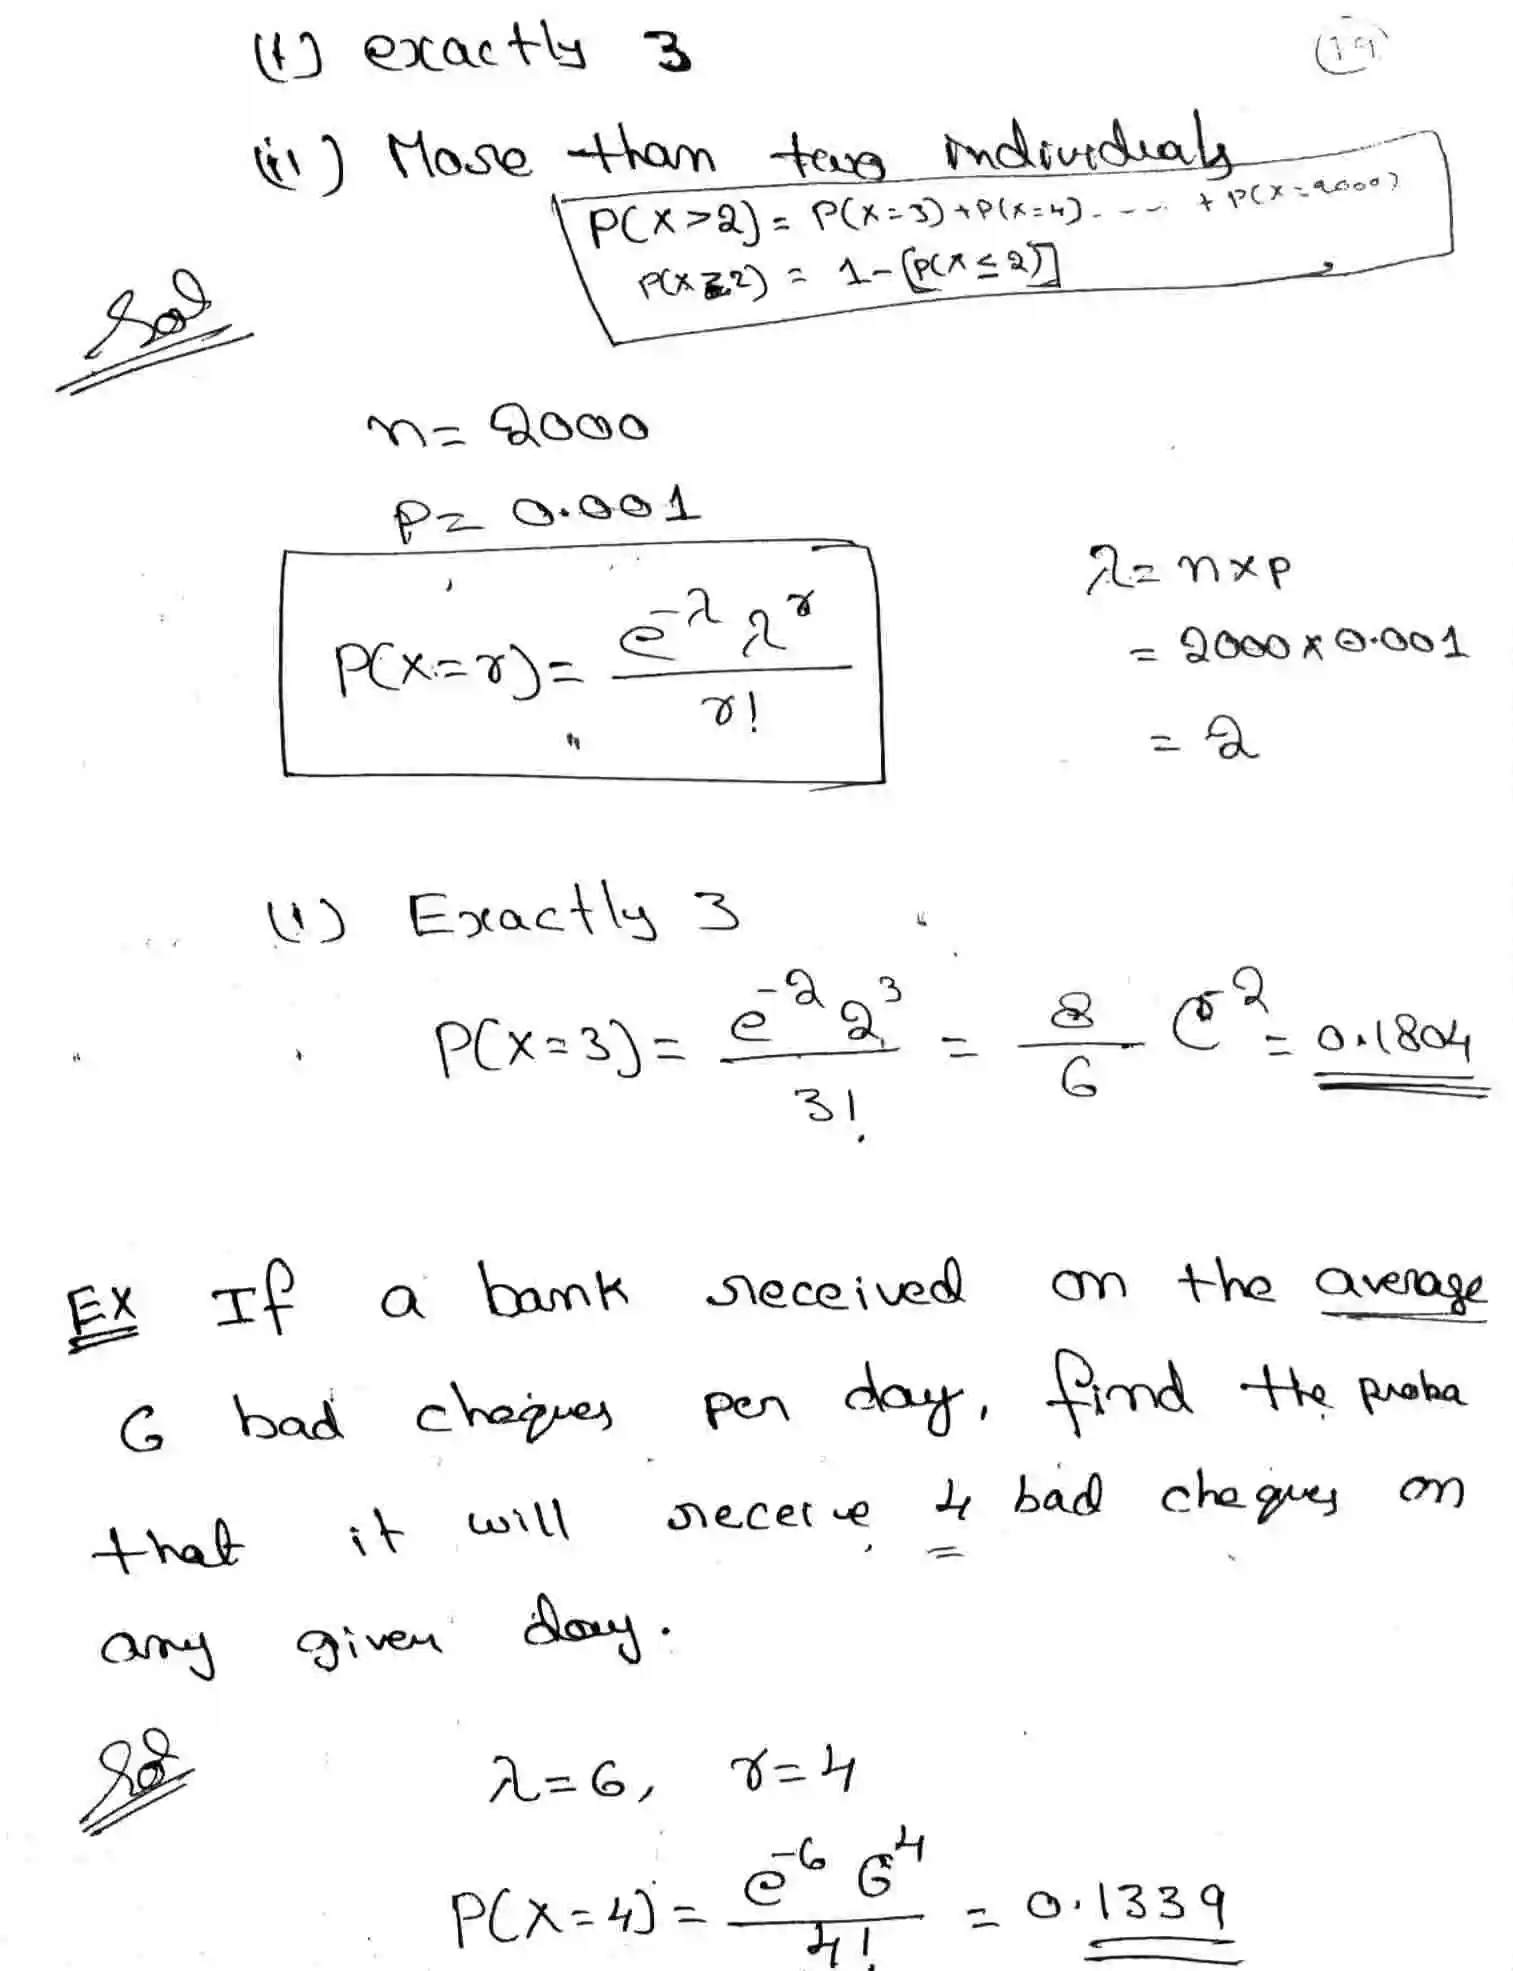 (i) exactly 3
(19)
(ii) More than two individuals
P(X>2) = P(X=3) + P(X=4) - - - - + P(X=2000)
P(X≥2) = 1-[P(X≤2)]
Sol
n= 2000
P= 0.001
λ= n×p
= 2000×0.001
= 2
P(X=r)= e^-λ λ^r / r!
(i) Exactly 3
P(X=3)= e^-2 2^3 / 3! = 8/6 e^-2 = 0.1804
EX If a bank received on the average
6 bad cheques per day, find the proba
that it will receive 4 bad cheques on
any given day.
Sol
λ=6, r=4
P(X=4)= e^-6 6^4 / 4! = 0.1339